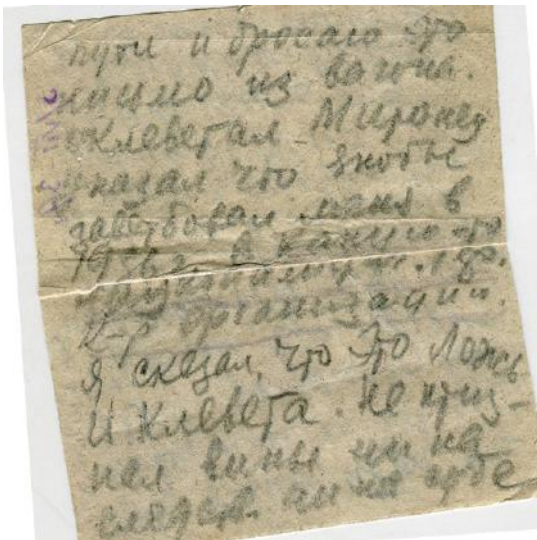 пути и бросаю это
письмо из вагона.
оклеветал Миронец
сказал что якобы
завербовал меня в
1936г. в какую-то
к-р организацию.
я сказал, что это ложь
и клевета. не приз-
нал вины ни на
следств. ни на суде